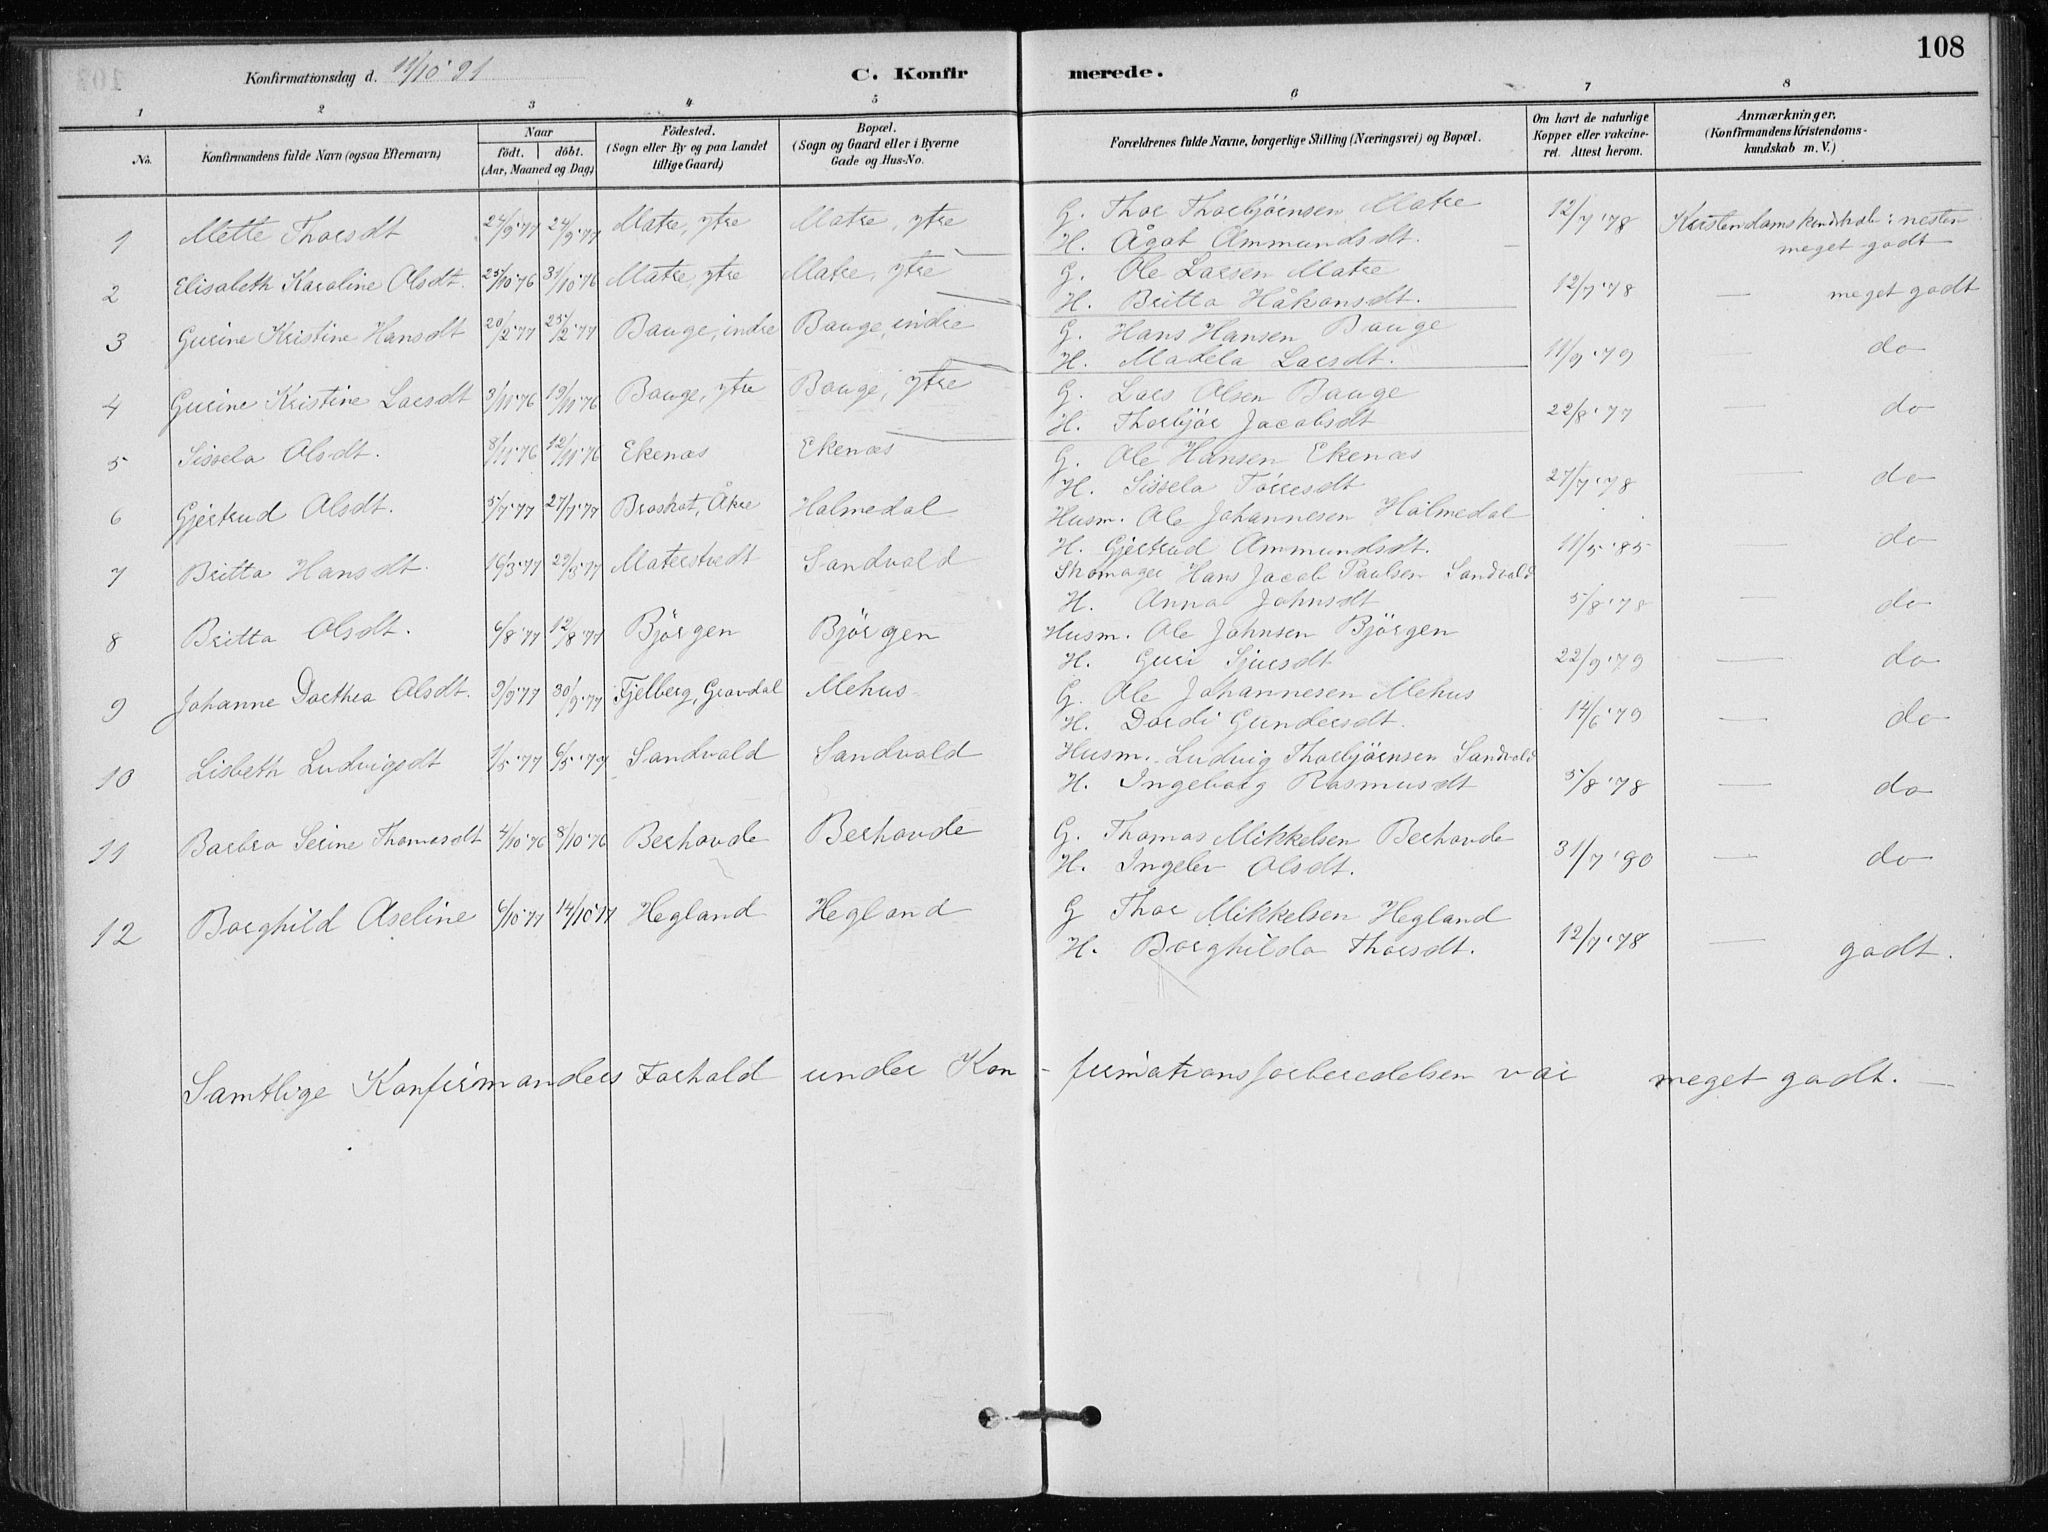 108
Konfirmationsdag d. 11/10 '91
C. Konfirmerede.
1 2 3 4 5 6 7 8
No.
Konfirmandens fulde Navn (ogsaa Efternavn)
Naar
födt. döbt.
(Aar, Maaned og Dag)
Födested.
(Sogn eller By og paa Landet
tillige Gaard)
Bopæl.
(Sogn og Gaard eller i Byerne
Gade og Hus-No.
Forældrenes fulde Navne, borgerlige Stilling (Næringsvei) og Bopæl.
Om havt de naturlige
Kopper eller vakcine-
ret. Attest herom.
Anmærkninger.
(Konfirmandens Kristendoms-
kundskab m. V.)
1 Mette Thorsdt 24/9 '77 24/9 '77 Matre, ytre Matre, ytre G. Thor Thorbjörnsen Matre 12/7 '78 Kristendomskundskab: nesten
H. Ågot Ammundsdt. meget godt
2 Elisabeth Karoline Olsdt. 25/10 '76 31/10 '76 Matre, ytre Matre, ytre G. Ole Larsen Matre
H. Britta Håkonsdt. 12/7 '78 — meget godt
3 Gurine Kristine Hansdt 20/2 '77 25/2 '77 Bauge, indre Bauge, indre G. Hans Hansen Bauge
H. Madela Larsdt. 11/9 '79 do
4 Gurine Kristine Larsdt 3/11 '76 19/11 '76 Bauge, ytre Bauge, ytre G. Lars Olsen Bauge
H. Thorbjør Jacobsdt 22/8 '77 — do
5 Sissela Olsdt. 8/11 '76 12/11 '76 Ekenæs Ekenæs G. Ole Hansen Ekenæs
H. Sissela Tørresdt 27/7 '78 — do
6 Gjertrud Olsdt. 5/7 '77 27/7 '77 Broskot, Åkre Halmedal Husm. Ole Johannesen Halmedal
H. Gjertrud Ammundsdt. 11/5 '85 — do
7 Britta Hansdt. Materstvedt Sandvold Skomager Hans Jacob Paulsen Sandvold
H. Anna Johnsdt 5/8 '78 — do
8 Britta Olsdt. 6/8 '77 12/8 '77 Bjørgen Bjørgen Husm. Ole Johnsen Bjørgen
H. Guri Sjursdt 22/9 '79 — do
9 Johanne Dorthea Olsdt. 9/9 '77 30/9 '77 Fjelberg, Gravdal Mehus G. Ole Johannesen Mehus
H. Dordi Gundersdt. 14/6 '79 — do
10 Lisbeth Ludvigsdt 1/5 '77 6/5 '79 Sandvold Sandvold Husm. Ludvig Thorbjörnsen Sandvold
H. Ingeborg Rasmusdt 5/8 '78 — do
11 Barbro Serine Thomasdt 4/10 '76 8/10 '76 Berhovde Berhovde G. Thomas Mikkelsen Berhovde
H. Ingelev Olsdt. 31/7 '80 — do
12 Borghild Aseline 6/10 '77 14/10 '77 Hegland Hegland G Thor Mikkelsen Hegland
H. Borghilda Thorsdt. 12/7 '78 — godt.
Samtlige Konfirmanders Forhold under Kon- firmationsforberedelsen var meget godt. —